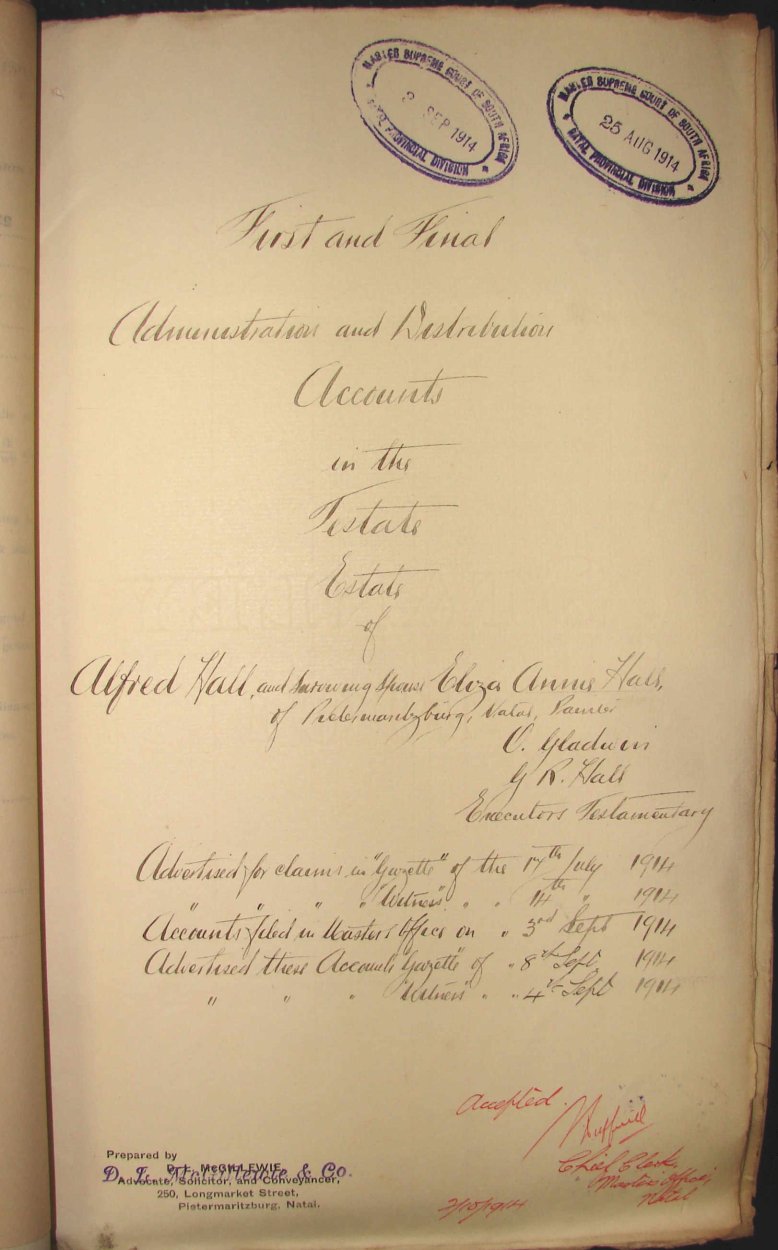 MASTER SUPREME COURT OF SOUTH AFRICA
SEP 1914
NATAL PROVINCIAL DIVISION
MASTER SUPREME COURT OF SOUTH AFRICA
25 AUG 1914
NATAL PROVINCIAL DIVISION
First and Final
Administration and Distribution
Accounts
in the
Testate
Estate
of
Alfred Hall, and surviving spouse Eliza Annie Hall,
of Pietermaritzburg, Natal, Painter
O. Gladwin
G R. Hall
Executors Testamentary
Advertised for claims in "Gazette" of the 17th July 1914
" " " " "Witness" " " 14th " 1914
Accounts filed in Masters Office on " 3rd Sept 1914
Advertised these Accounts "Gazette" of " 8th Sept 1914
" " " "Witness" " " 4th Sept 1914
Accepted.
Chief Clerk,
Master's Office,
Natal
2/10/1914
Prepared by
D. L. McGILLEWIE,
D. L. McGillewie & Co.
Advocate, Solicitor, and Conveyancer,
250, Longmarket Street,
Pietermaritzburg, Natal.